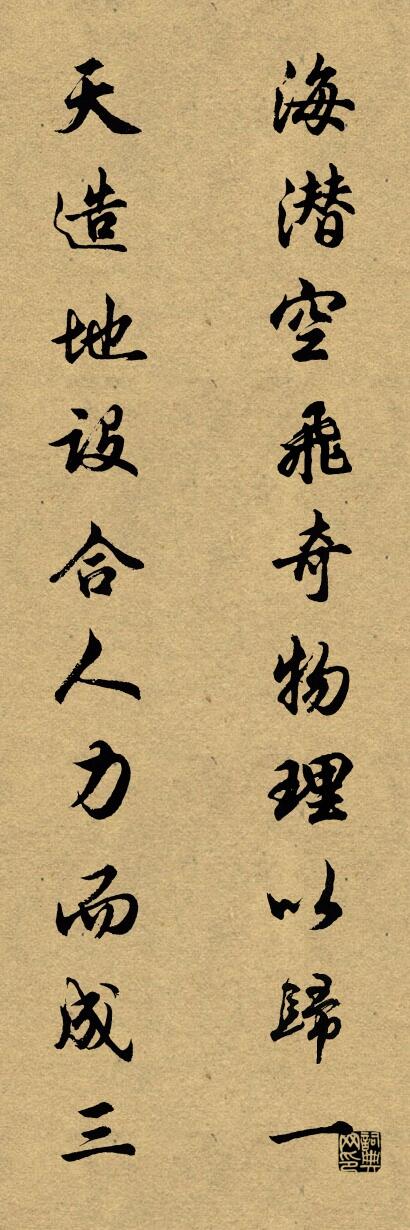 海潜空飛奇物理以歸一
天造地設合人力而成三
詞典网印